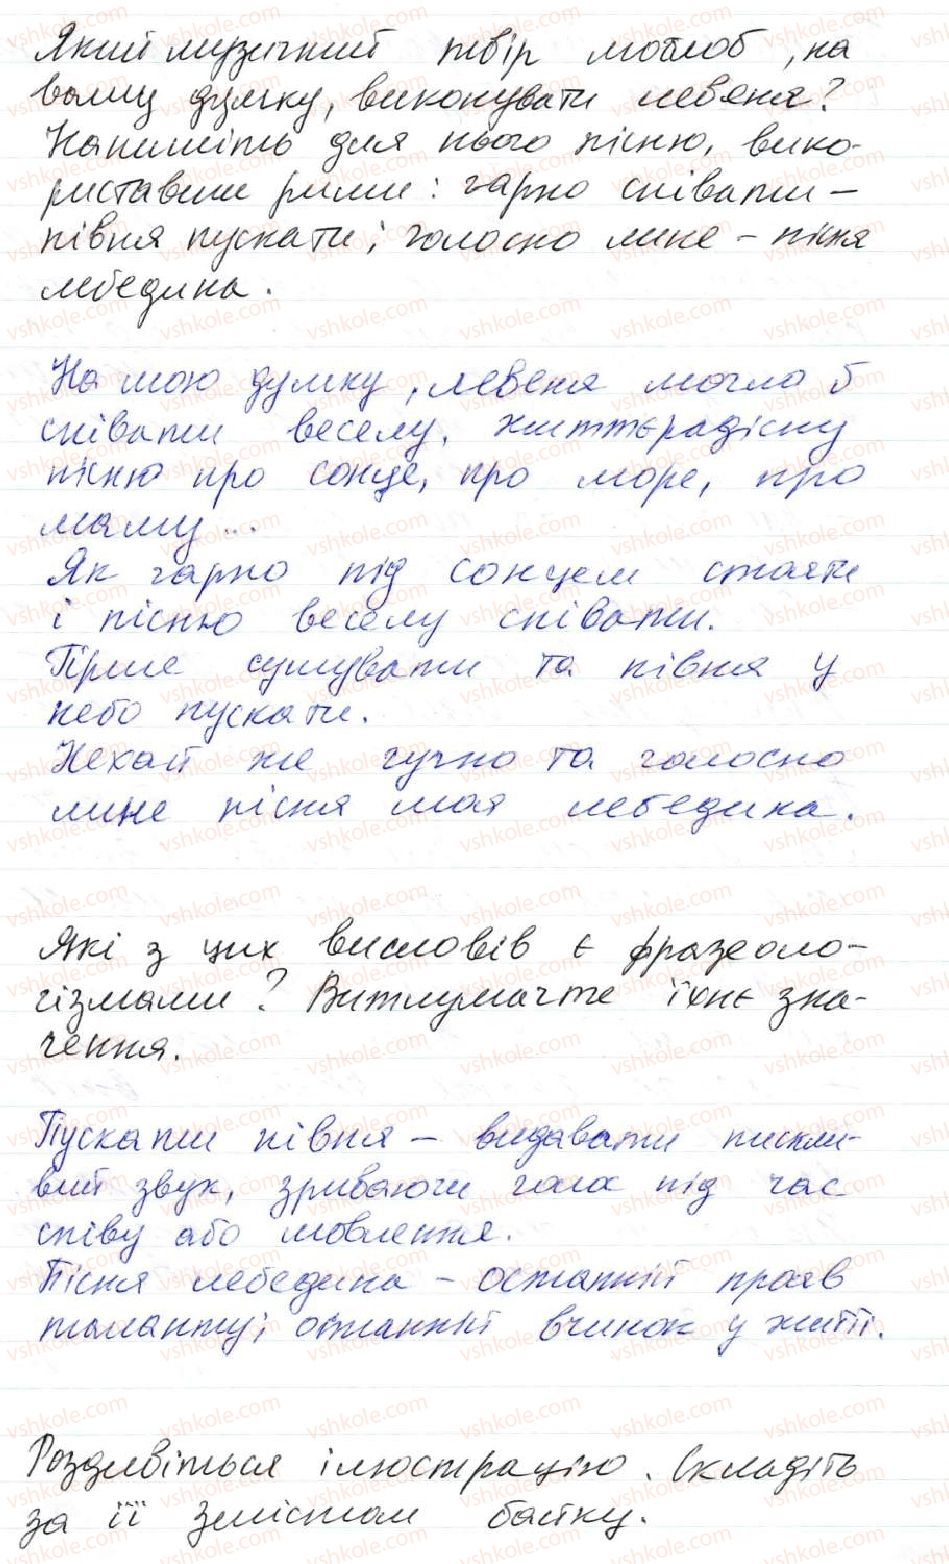 Який музичний твір моглоб, на
вашу думку, виконувати левеня?
Напишіть для нього пісню, вико-
риставши рими: гарно співати –
півня пускати; голосно лине – пісня
лебедина.
На мою думку, левеня могло б
співати веселу, життєрадісну
пісню про сонце, про море, про
маму...
Як гарно під сонцем стояти
і пісню веселу співати.
Гірше сумувати та півня у
небо пускати.
Нехай же гучно та голосно
лине пісня моя лебедина.
Які з цих висловів є фразеоло-
гізмами? Витлумачте їхнє зна-
чення.
Пускати півня – видавати пискли-
вий звук, зриваючи голос під час
співу або мовлення.
Пісня лебедина – останній прояв
таланту; останній вчинок у житті.
Роздивіться ілюстрацію. Складіть
за її змістом байку.